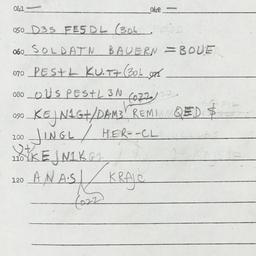 061 — 060 —
050 D3S FE5DL (30L
060 SOLDATN BAUERN = BOUE
070 PES+L KUT+ (30L
080 OUSPES+L3N (022)
090 KEJN1G+/DAM3 REMI QED $
100 JINGL / HER--CL
110 KEJN1K
120 ANAS / KRAJC
(022)